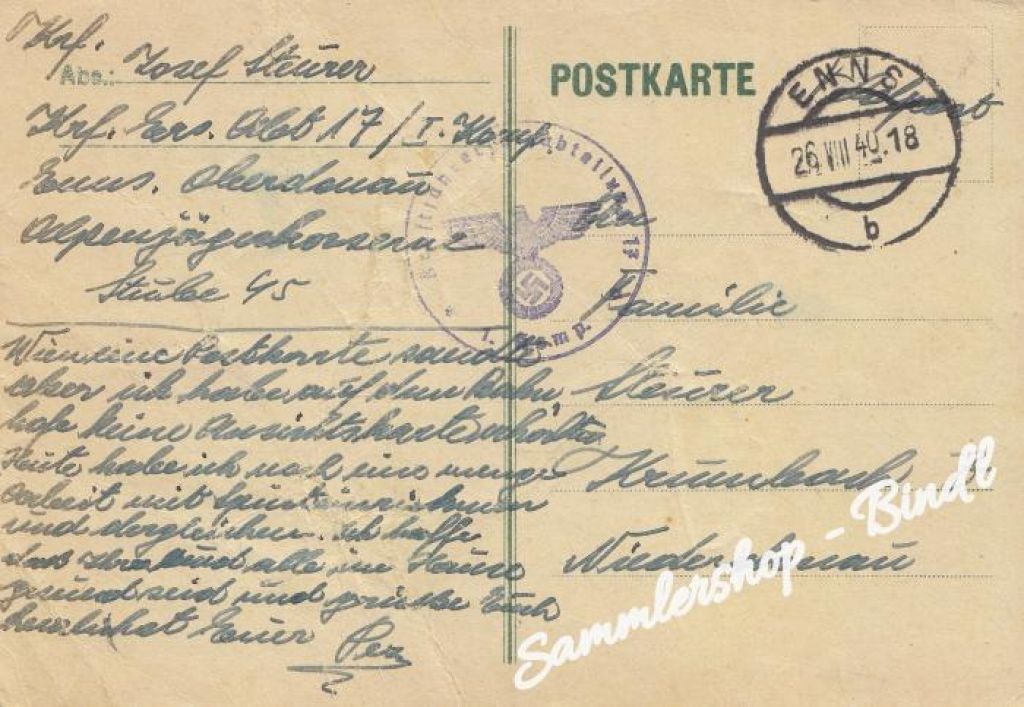 Krf.
Abs.: Josef Steurer
Krf. Ers. Abt 17/I. Komp.
Enns. Oberdonau
Alpenjägerkaserne
Stube 45
eine Postkarte sende
aber ich habe auf dem Bahn,
hofe keine Ansichtskarte
Heute habe ich noch eine
Arbeit mit
und dergleichen. Ich hoffe
das Ihr und alle im Hause
gesund seid und grüsse Euch
herzlichst Euer
POSTKARTE
Feldpost
ENNS
26 VIII 40.18
b
Kraftfahrersatzabteilung 17
1. Komp.
An
Familie
Steurer
Krumbach
Niederdonau
Sammlershop - Bindl